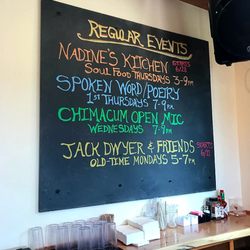 REGULAR EVENTS
NADINE'S KITCHEN STARTS
SOUL FOOD THURSDAYS 3-9PM
SPOKEN WORD/POETRY
1ST THURSDAYS 7-9PM
CHIMACUM OPEN MIC
WEDNESDAYS 7-9PM
JACK DWYER & FRIENDS STARTS
OLD-TIME MONDAYS 5-7PM